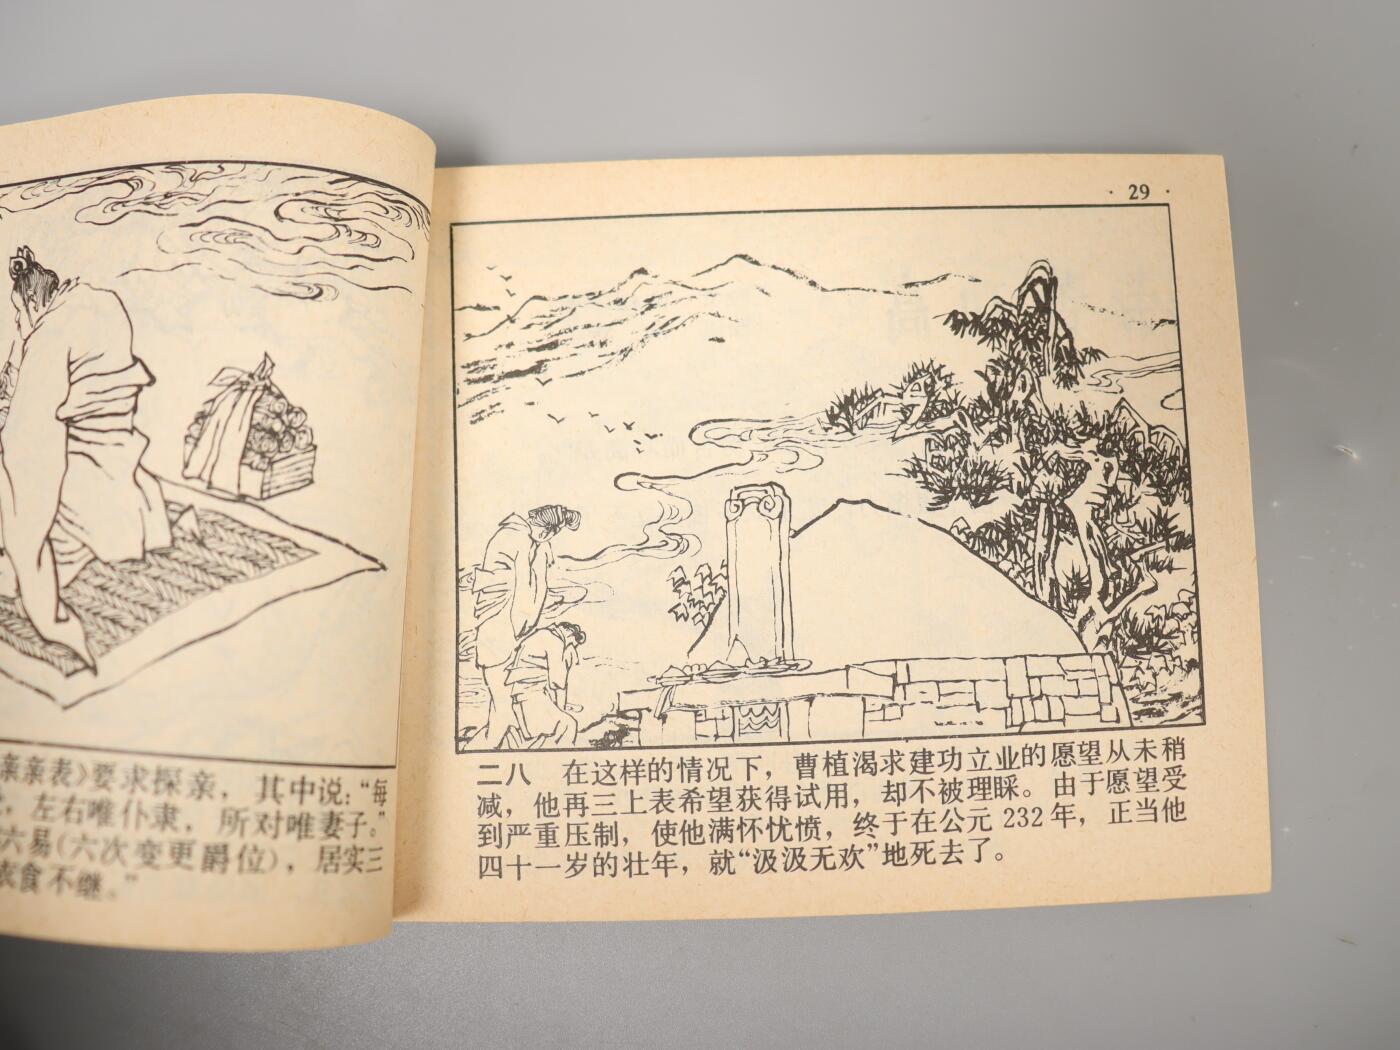 亲亲表》要求探亲，其中说：“每
，左右唯仆隶，所对唯妻子。”
六易（六次变更爵位），居实三
衣食不继。”
·29·
二八　在这样的情况下，曹植渴求建功立业的愿望从未稍
减，他再三上表希望获得试用，却不被理睬。由于愿望受
到严重压制，使他满怀忧愤，终于在公元232年，正当他
四十一岁的壮年，就“汲汲无欢”地死去了。